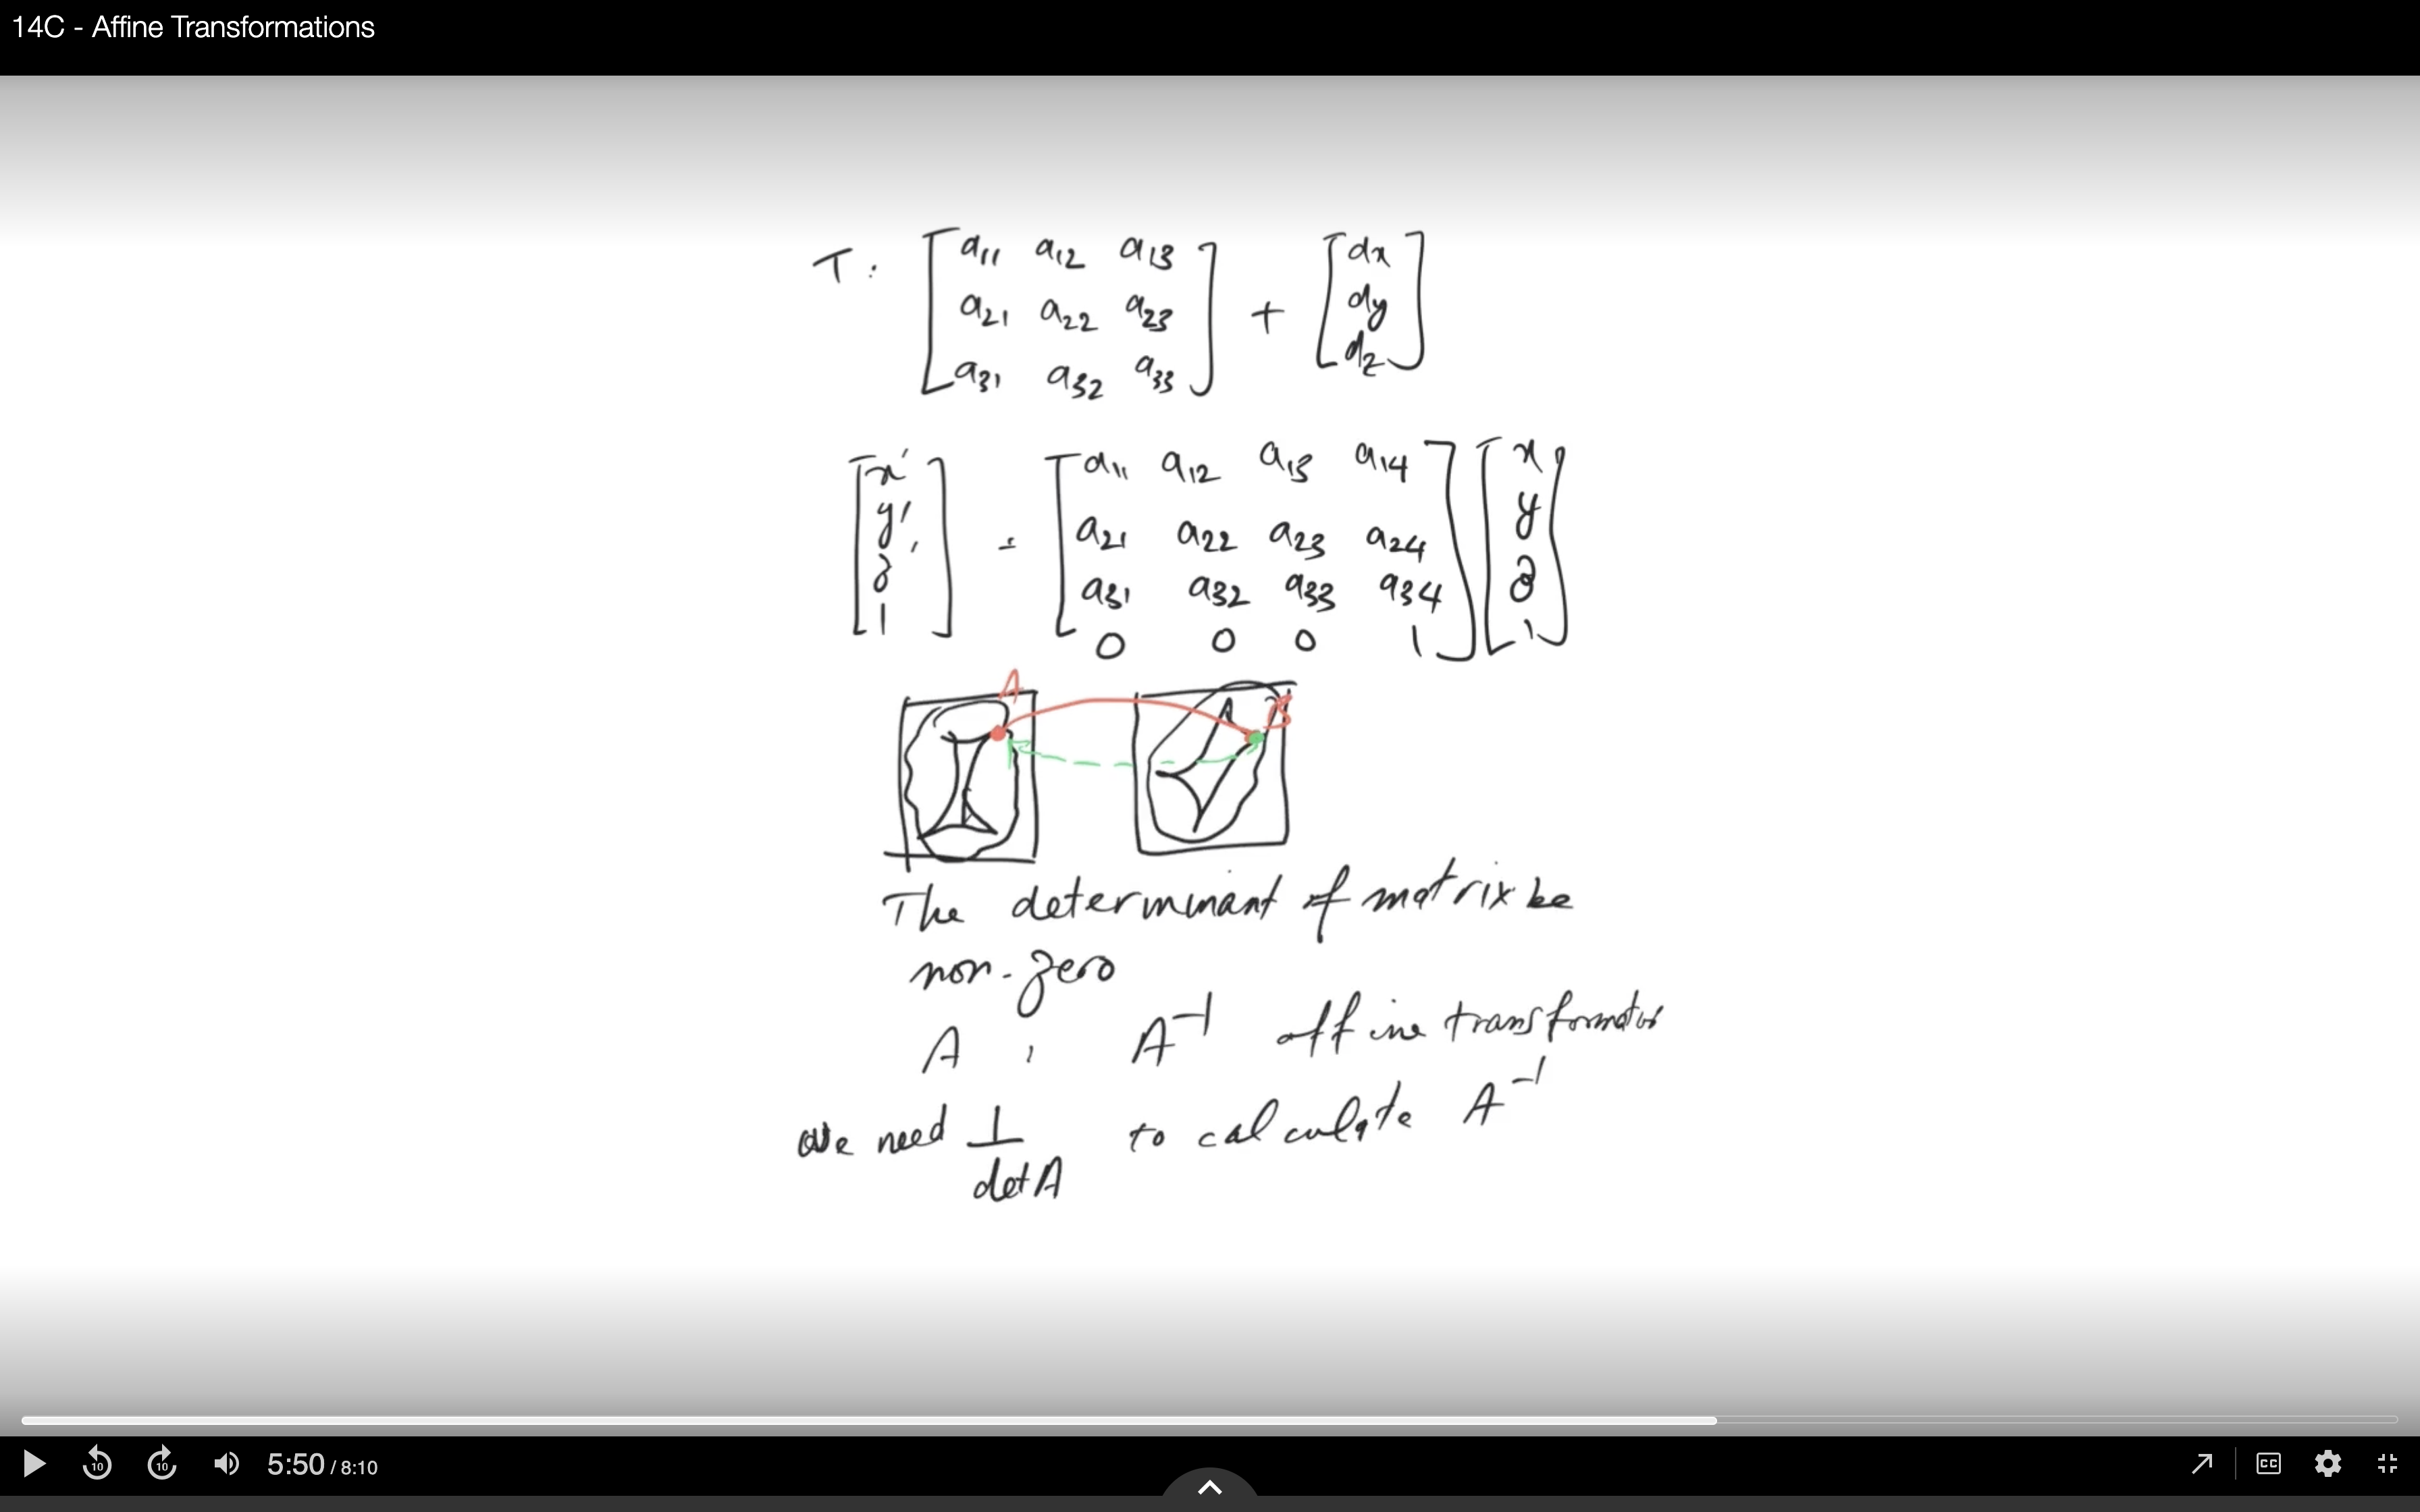 14C - Affine Transformations
T: [a11 a12 a13] + [dx]
[a21 a22 a23] [dy]
[a31 a32 a33] [dz]
[x'] = [a11 a12 a13 a14] [x]
[y'] [a21 a22 a23 a24] [y]
[z'] [a31 a32 a33 a34] [z]
[1] [0 0 0 1] [1]
A B
The determinant of matrix be
non-zero
A, A⁻¹ affine transformation
We need 1/det A to calculate A⁻¹
10 10 5:50 / 8:10 CC